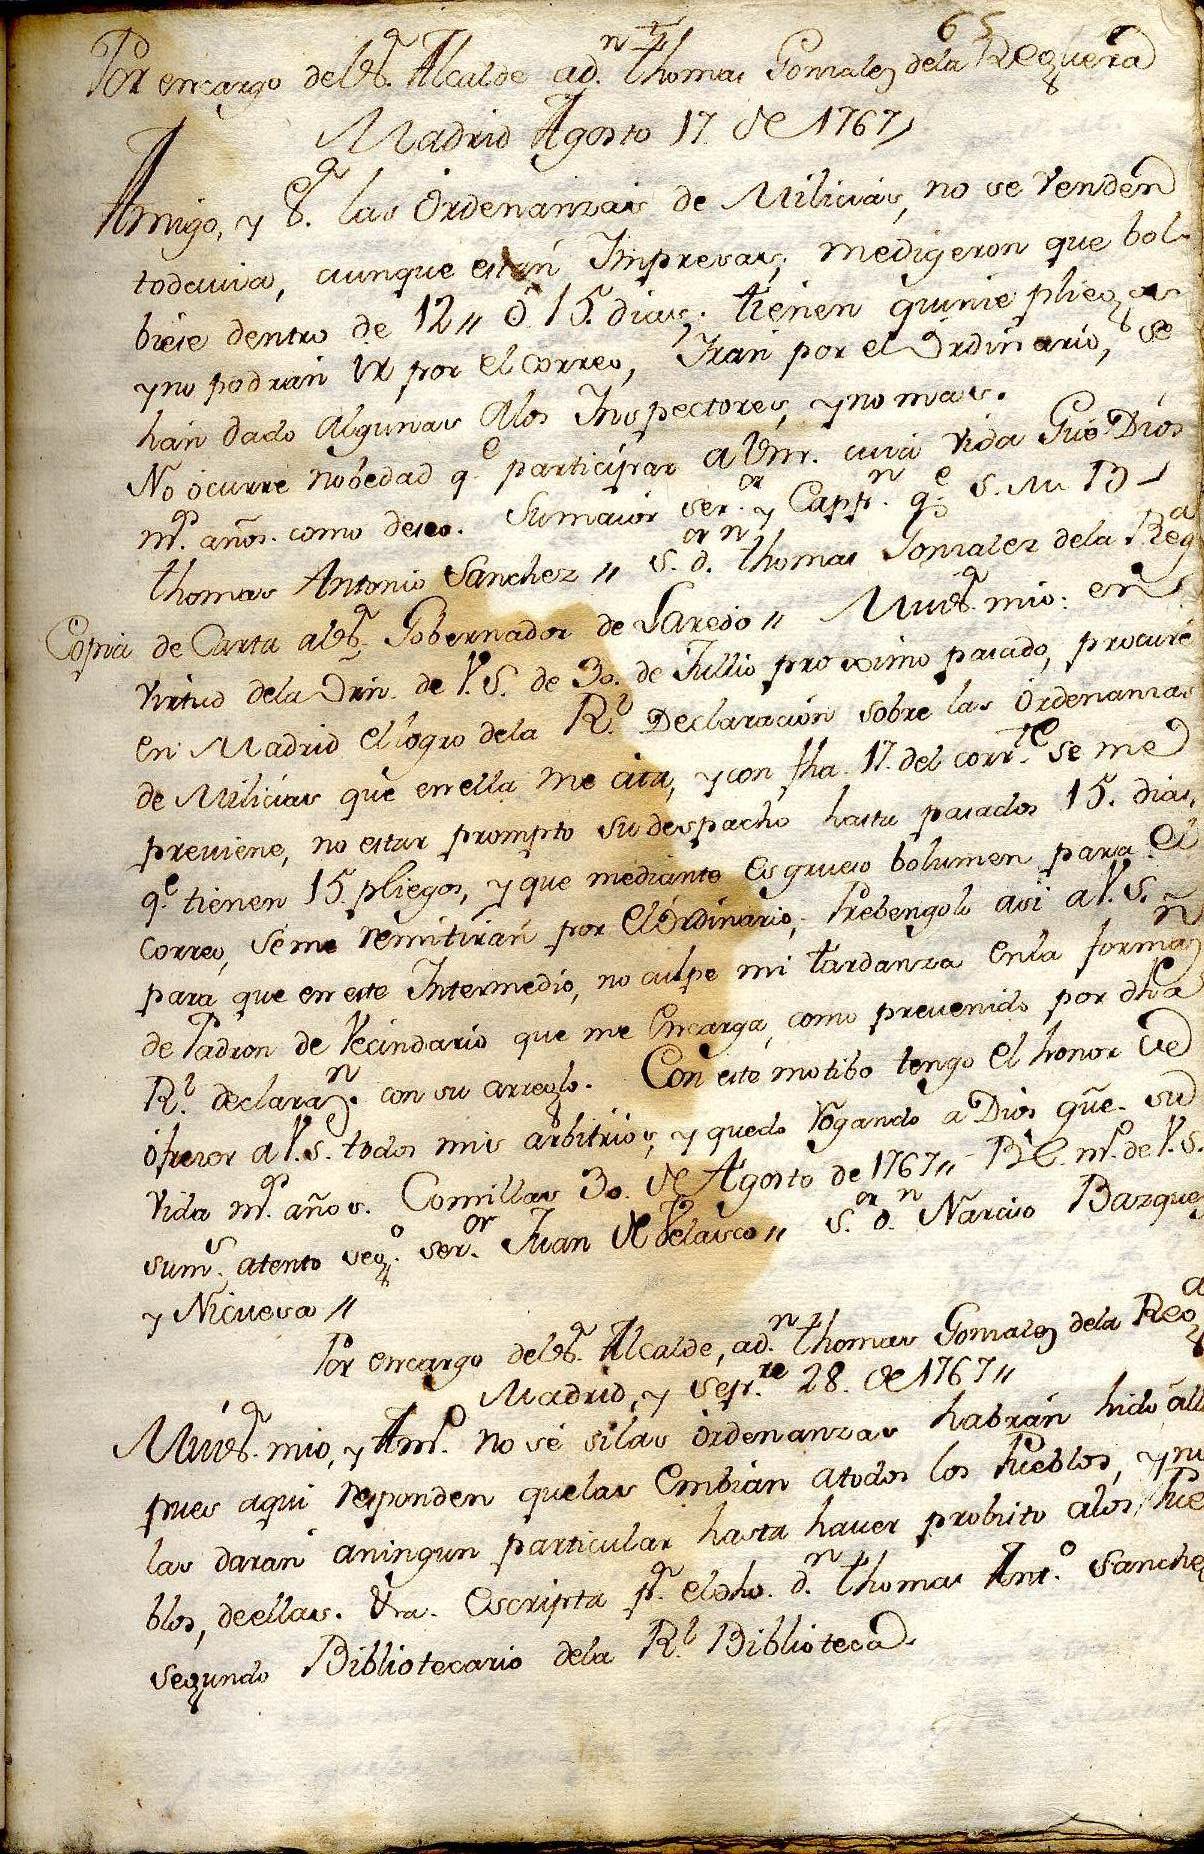 65
Por encargo del Sr. Alcalde a dn. thomas Gonzalez dela Reguera
Madrid Agosto 17. de 1767,
Amigo, y Sr. las Ordenanzas de Milicias, no se venden
todauia, aunque están Impresas; medigeron que bol-
biese dentro de 12 ,, ó 15. dias; tienen quince pliegos
y no podrán Ir por el Correo, Irán por el Ordinario, se
hán dado Algunas Alos Inspectores, y no mas.
No ócurre nobedad qe. participar a Vm. cuia vida Gue. Dios
ms. años. como deseo. Su maior seror. y Cappn. qe. s. M B
thomas Antonio Sanchez ,, sor. dn. thomas Gonzalez dela Rega
Copia de Carta al Sr. Gobernador de Laredo ,, Mui Sr. mio: en
virtud dela Orn. de V.S. de 30. de Jullio proximo pasado, procuré
en Madrid el logro dela Rl. Declaración sobre las Ordenanzas
de Milicias que en ella me cita, y con fha. 17. del corrte. se me
preuiene, no estar prompto su despacho hasta pasados 15. dias,
qe. tienen 15 pliegos, y que mediante Es grueso bolumen para el
Correo, se me remitirán por el Ordinario; Prebengolo asi a V.S.
para que en este Intermedio, no culpe mi tardanza en la formazn.
de Padron de Vecindario que me Encarga, como preuenido por dha
Rl. declarazn. con su arreglo. Con este motibo tengo el honor de
ofrezer a V.S. todos mis arbitrios, y quedo rogando a Dios gue. su
vida ms. años. Comillas 30. de Agosto de 1767 ,, B L. mo. de V.S.
sum. atento sego. seror. Juan de Velasco ,, sor. dn. Narciso Bazquez
y Nicuesa ,,
Por encargo del Sr. Alcalde, a dn. thomas Gonzalez dela Rega
Madrid, y sepre. 28. de 1767 ,,
Mui Sr. mio, y Amo. no sé silas órdenanzas habrán hido álli
pues aqui responden quelas Embian atodos los Pueblos, y no
las darán aningun particular hasta hauer probisto alos Pue
blos, de ellas. Vra. Escripta pr. el dho. dn. thomas Anto. Sanchez
segundo Bibliotecario dela Rl. Biblioteca.